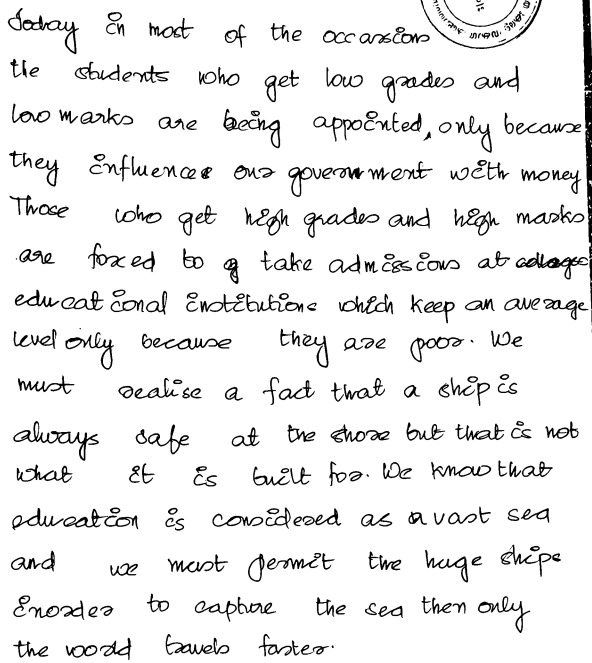 Today in most of the occassions
the students who get low grades and
low marks are being appointed, only because
they influence our government with money
Those who get high grades and high marks
are foxed to take admissions at
educational institutions which keep an average
level only because they are poor. We
must realise a fact that a ship is
always safe at the shore but that is not
what it is built for. We know that
education is considered as a vast sea
and we must permit the huge ships
inorder to capture the sea then only
the world travels faster.